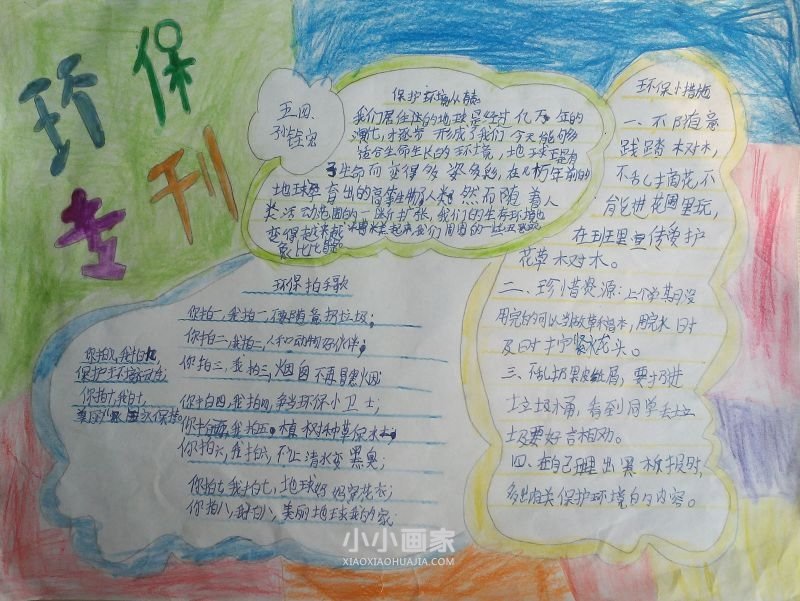 环保
专刊
五四
保护环境从我
我们居住的地球是经过亿万年的
演化,才逐步形成了我们今天能够
适合生命生长的环境,地球正是有
了生命而变得多姿多彩,在几万年前的
地球孕育出的高等生物了人类.然而随着人
类活动范围的一断扩张,我们的生存环境也
变得越来越
我们周围的一些
象比比皆
环保小措施
一、不随意
践踏树木,
不乱摘花,不
能进花圃里玩,
在班里宣传爱护
花草树木。
二、珍惜资源:上个学期没
用完的可以当做草稿本,用完水时
及时拧紧水龙头。
三、不乱扔果皮纸屑,要扔进
垃圾桶,看到同学丢垃
圾要好言相劝。
四、在自己理出黑板报时,
多出有关保护环境的内容。
环保拍手歌
你拍一,我拍一,不随意扔垃圾;
你拍二,我拍二,人和动物好伙伴;
你拍三,我拍三,烟囱不再冒黑烟
你拍四,我拍四,争当环保小卫士;
你拍五,我拍五。植树种草保水土;
你拍六,我拍六,不让清水变黑臭;
你拍七,我拍七,地球妈妈穿花衣;
你拍八,我拍八,美丽地球我的家;
你拍九,我拍九,
保护环境
你拍十,我拍十,
小小画家
XIAOXIAOHUAJIA.COM